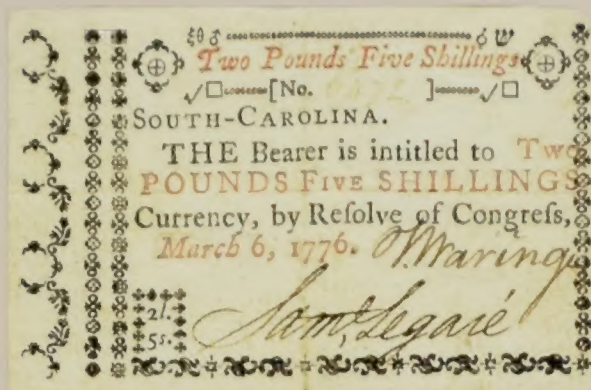 Two Pounds Five Shillings
[No. ]
SOUTH-CAROLINA.
THE Bearer is intitled to Two
POUNDS Five SHILLINGS
Currency, by Reſolve of Congreſs,
March 6, 1776.
Waring
Saml. Legaré
2l.
5s.